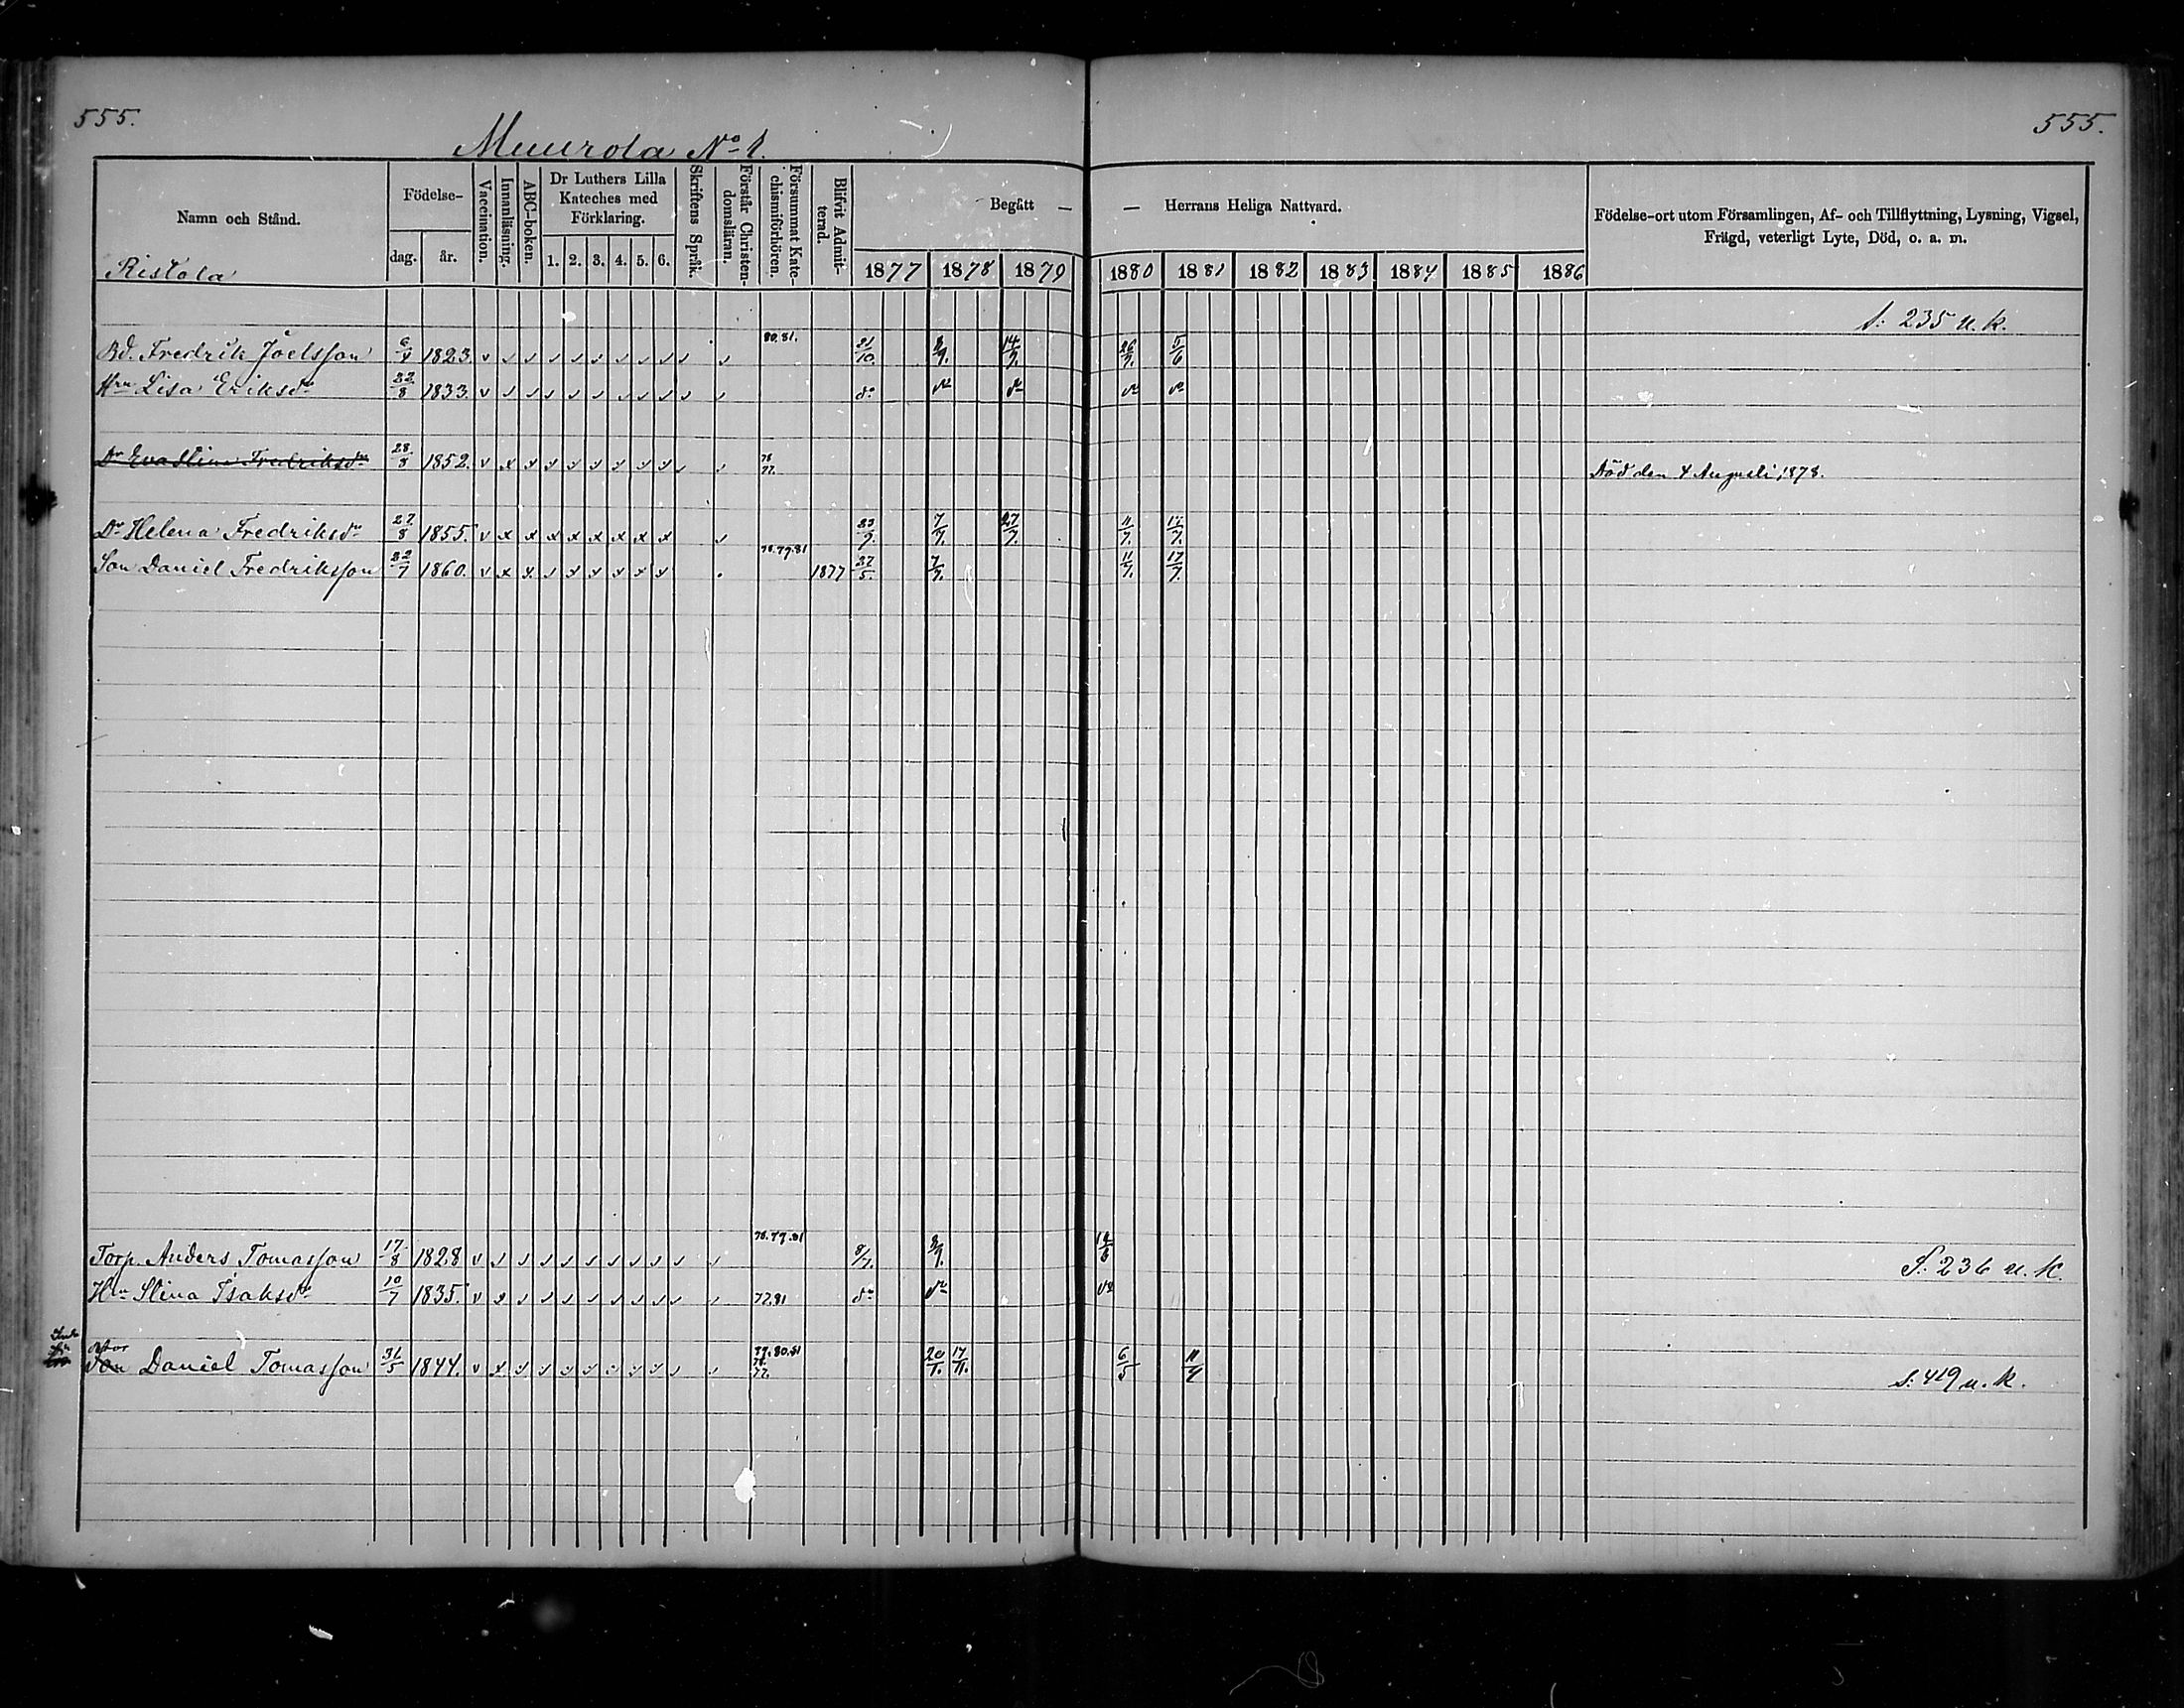 555.
555.
Muurola No 1.
Namn och Stånd.
Födelse-
dag.
år.
Vaccination.
Innanläsning.
ABC-boken.
Dr Luthers Lilla Kateches med Förklaring.
1. 2. 3. 4. 5. 6.
Skriftens Språk.
Förstår Christen-domsläran.
Försummat Kate-chismiförhören.
Blifvit Admit-terad.
Begått — — Herrans Heliga Nattvard.
1877 1878 1879 1880 1881 1882 1883 1884 1885 1886
Födelse-ort utom Församlingen, Af- och Tillflyttning, Lysning, Vigsel,
Frägd, veterligt Lyte, Död, o. a. m.
Ristola
S: 235 u. k.
Bd. Fredrik Joelsson 6/4 1823. 80.81. 21/10. 8/9. 14/9. 26/9. 5/6
Hru Lisa Eriksdr 22/8 1833. do do do do do
Dr Eva Stina Fredriksdr 28/8 1852. 78 77. Död den 4 Augusti 1878.
Dr Helena Fredriksdr 27/8 1855. 23/9. 7/7. 27/7. 11/7. 17/7.
Son Daniel Fredriksson 22/7 1860. 78.79.81 1877 27/5. 7/7. 11/7. 17/7.
Torp. Anders Tomasson 17/8 1828 78.79.81 8/7. 8/9. S: 236 u. k.
Hu Stina Isaksdr 10/7 1835. 77.81 do do do
Son Daniel Tomasson 31/5 1844. 79.80.81 78. 77. 20/1. 17/11. 6/5 11/4 S: 419 u. k.